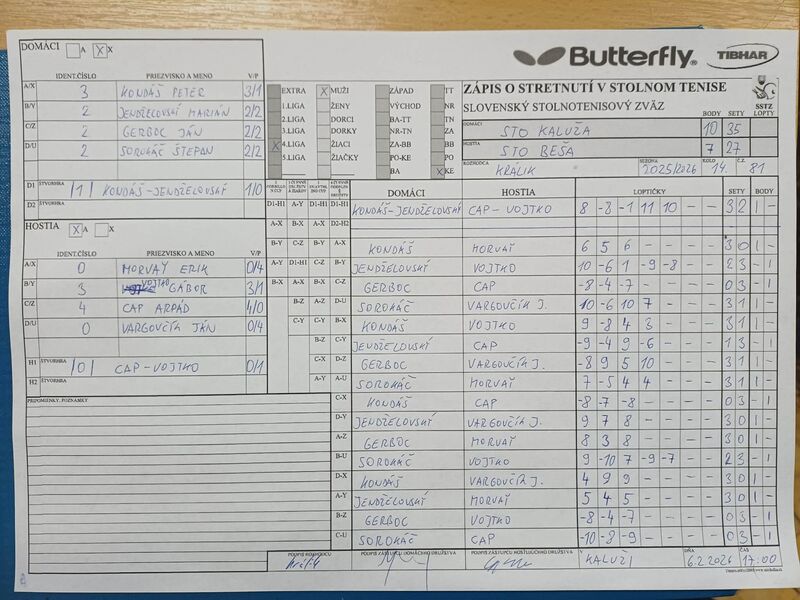 DOMÁCI A X X
Butterfly TIBHAR
IDENT.ČÍSLO PRIEZVISKO A MENO V/P
A/X 3 KONDÁŠ PETER 3/1
B/Y 2 JENDŽELOVSKÝ MARIÁN 2/2
C/Z 2 GERBOC JÁN 2/2
D/U 2 SOROKÁČ ŠTEFAN 2/2
D1 ŠTVORHRA /1/ KONDÁŠ-JENDŽELOVSKÝ 1/0
D2
EXTRA X MUŽI ZÁPAD TT
1.LIGA ŽENY VÝCHOD NR
2.LIGA DORCI BA-TT TN
3.LIGA DORKY NR-TN ZA
X 4.LIGA ŽIACI ZA-BB BB
5.LIGA ŽIAČKY PO-KE PO
BA X KE
ZÁPIS O STRETNUTÍ V STOLNOM TENISE
SLOVENSKÝ STOLNOTENISOVÝ ZVÄZ SSTZ
BODY SETY LOPTY
DOMÁCI STO KALUŽA 10 35
HOSTIA STO BEŠA 7 27
ROZHODCA KRÁLIK SEZÓNA 2025/2026 KOLO 14. Č.Z. 81
HOSTIA X A X
IDENT.ČÍSLO PRIEZVISKO A MENO V/P
A/X 0 MORVAY ERIK 0/4
B/Y 3 VOJTKO GÁBOR 3/1
C/Z 4 CAP ARPÁD 4/0
D/U 0 VARGOVČÍK JÁN 0/4
H1 ŠTVORHRA /0/ CAP-VOJTKO 0/1
H2 ŠTVORHRA
PRIPOMIENKY, POZNÁMKY
DOMÁCI HOSTIA LOPTIČKY SETY BODY
D1-H1 A-Y D1-H1 D1-H1 KONDÁŠ-JENDŽELOVSKÝ CAP-VOJTKO 8 -8 -1 11 10 - - 3 2 1 -
A-X B-X A-X D2-H2
B-Y C-Z B-Y A-X KONDÁŠ MORVAY 6 5 6 - - - - 3 0 1 -
A-Y D1-H1 C-Z B-Y JENDŽELOVSKÝ VOJTKO 10 -6 1 -9 -8 - - 2 3 - 1
B-X A-X B-X C-Z GERBOC CAP -8 -4 -7 - - - - 0 3 - 1
B-Z A-Z D-U SOROKÁČ VARGOVČÍK J. 10 -6 10 7 - - - 3 1 1 -
C-Y C-Y B-X KONDÁŠ VOJTKO 9 -8 4 3 - - - 3 1 1 -
B-Z C-Y JENDŽELOVSKÝ CAP -9 -4 9 -6 - - - 1 3 - 1
C-X D-Z GERBOC VARGOVČÍK J. -8 9 5 10 - - - 3 1 1 -
A-Y A-U SOROKÁČ MORVAY 7 -5 4 4 - - - 3 1 1 -
C-X KONDÁŠ CAP -8 -7 -8 - - - - 0 3 - 1
D-Y JENDŽELOVSKÝ VARGOVČÍK J. 9 7 8 - - - - 3 0 1 -
A-Z GERBOC MORVAY 8 3 8 - - - - 3 0 1 -
B-U SOROKÁČ VOJTKO 9 -10 7 -9 -7 - - 2 3 - 1
D-X KONDÁŠ VARGOVČÍK J. 4 9 9 - - - - 3 0 1 -
A-Y JENDŽELOVSKÝ MORVAY 5 4 5 - - - - 3 0 1 -
B-Z GERBOC VOJTKO -8 -4 -7 - - - - 0 3 - 1
C-U SOROKÁČ CAP -10 -8 -9 - - - - 0 3 - 1
PODPIS ROZHODCU PODPIS ZÁSTUPCU DOMÁCEHO DRUŽSTVA PODPIS ZÁSTUPCU HOSŤUJÚCEHO DRUŽSTVA V KALUŽI DŇA 6.2.2026 ČAS 17:00